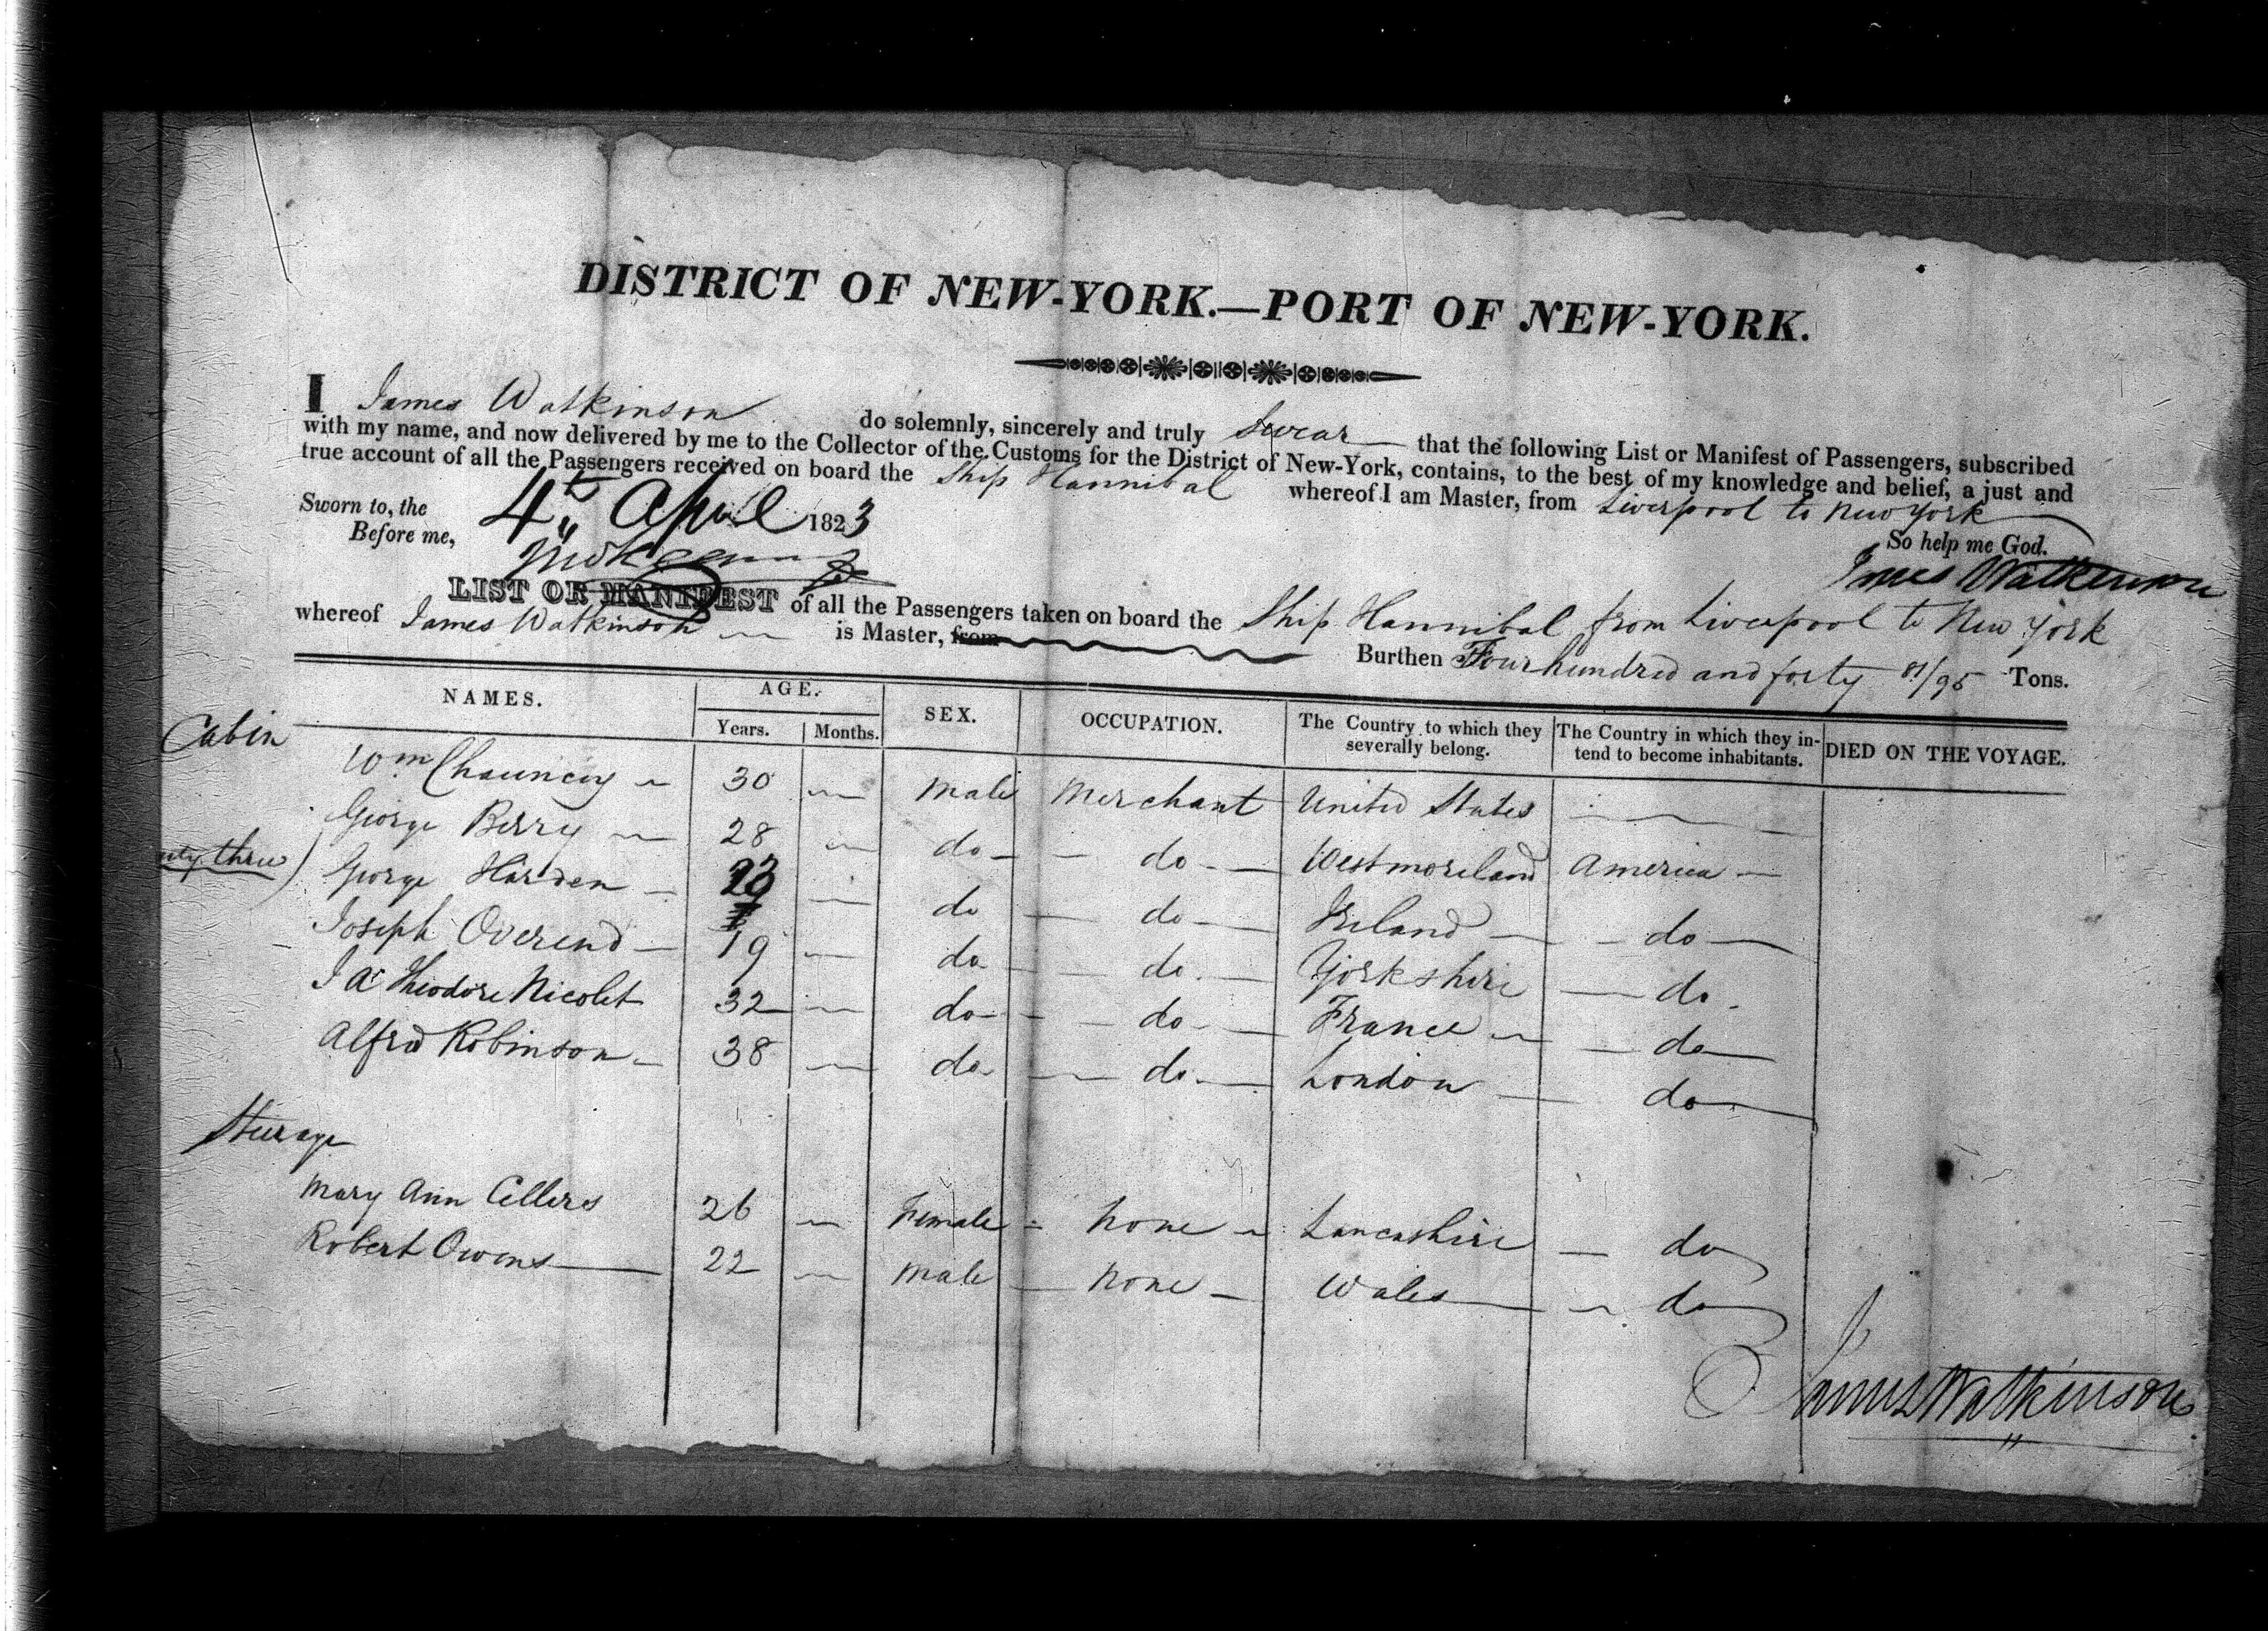 DISTRICT OF NEW-YORK.—PORT OF NEW-YORK.
I James Watkinson do solemnly, sincerely and truly swear that the following List or Manifest of Passengers, subscribed
with my name, and now delivered by me to the Collector of the Customs for the District of New-York, contains, to the best of my knowledge and belief, a just and
true account of all the Passengers received on board the Ship Hannibal whereof I am Master, from Liverpool to New York
Sworn to, the 4th April 1823
So help me God.
Before me,
James Watkinson
LIST OR MANIFEST of all the Passengers taken on board the Ship Hannibal from Liverpool to New York
whereof James Watkinson is Master, from Burthen Four hundred and forty 81/95 Tons.
NAMES. AGE. SEX. OCCUPATION. The Country to which they severally belong. The Country in which they intend to become inhabitants. DIED ON THE VOYAGE.
Years. Months.
Cabin
Wm Chauncey 30 male Merchant United States
George Berry 28 do do Westmoreland America
nty three) George Harden 23 do do Ireland do
Joseph Overend 19 do do Yorkshire do
Theodore Nicolet 32 do do France do
Alfred Robinson 38 do do London do
Steerage
Mary Ann Cellers 26 Female none Lancashire do
Robert Owens 22 male none Wales do
James Watkinson